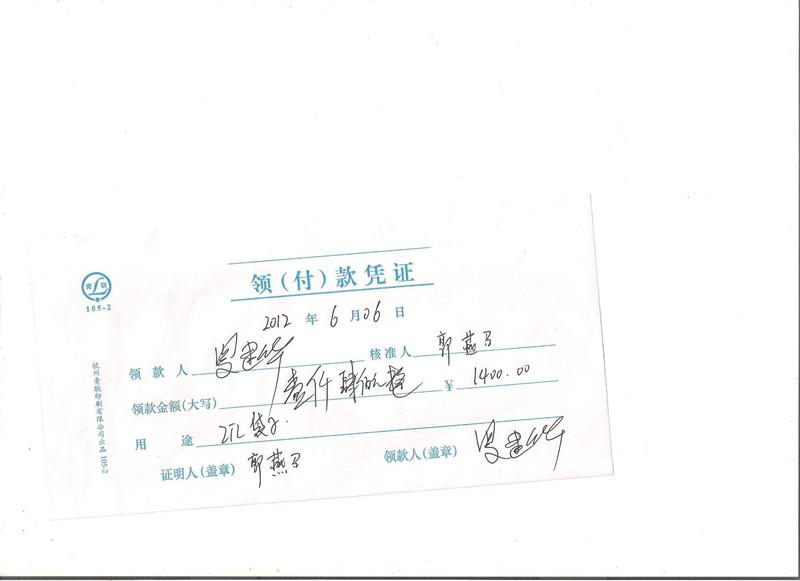 青联
105-2
领(付)款凭证
2012 年 6 月 06 日
领款人 核准人 郭燕
领款金额(大写) 壹仟肆佰元整 ¥ 1400.00
用途 袋子.
证明人(盖章) 郭燕 领款人(盖章)
杭州青联印刷有限公司出品 105-2